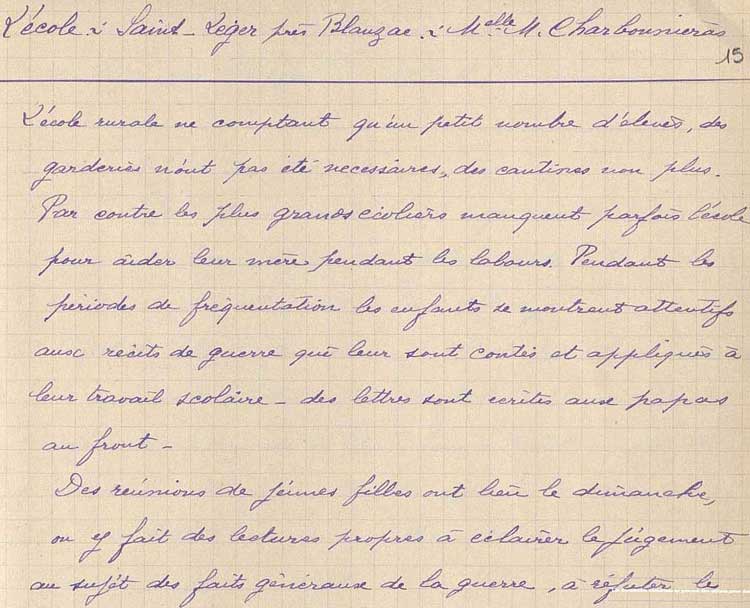 L'école à Saint-Léger près Blanzac. à Melle M. Charbonnieras
15
L'école rurale ne comptant qu'un petit nombre d'élevès, des
garderies n'ont pas été necessaires, des cantines non plus.
Par contre les plus grands écoliers manquent parfois l'école
pour aider leur mère pendant les labours. Pendant les
periodes de fréquentation les enfants se montrent attentifs
aux récits de guerre qui leur sont contés et appliqués à
leur travail scolaire - des lettres sont ecrites aux papas
au front -
Des réunions de jeunes filles ont lieu le dimanche,
on y fait des lectures propres à éclairer le jugement
au sujet des faits géneraux de la guerre, à réfuter le